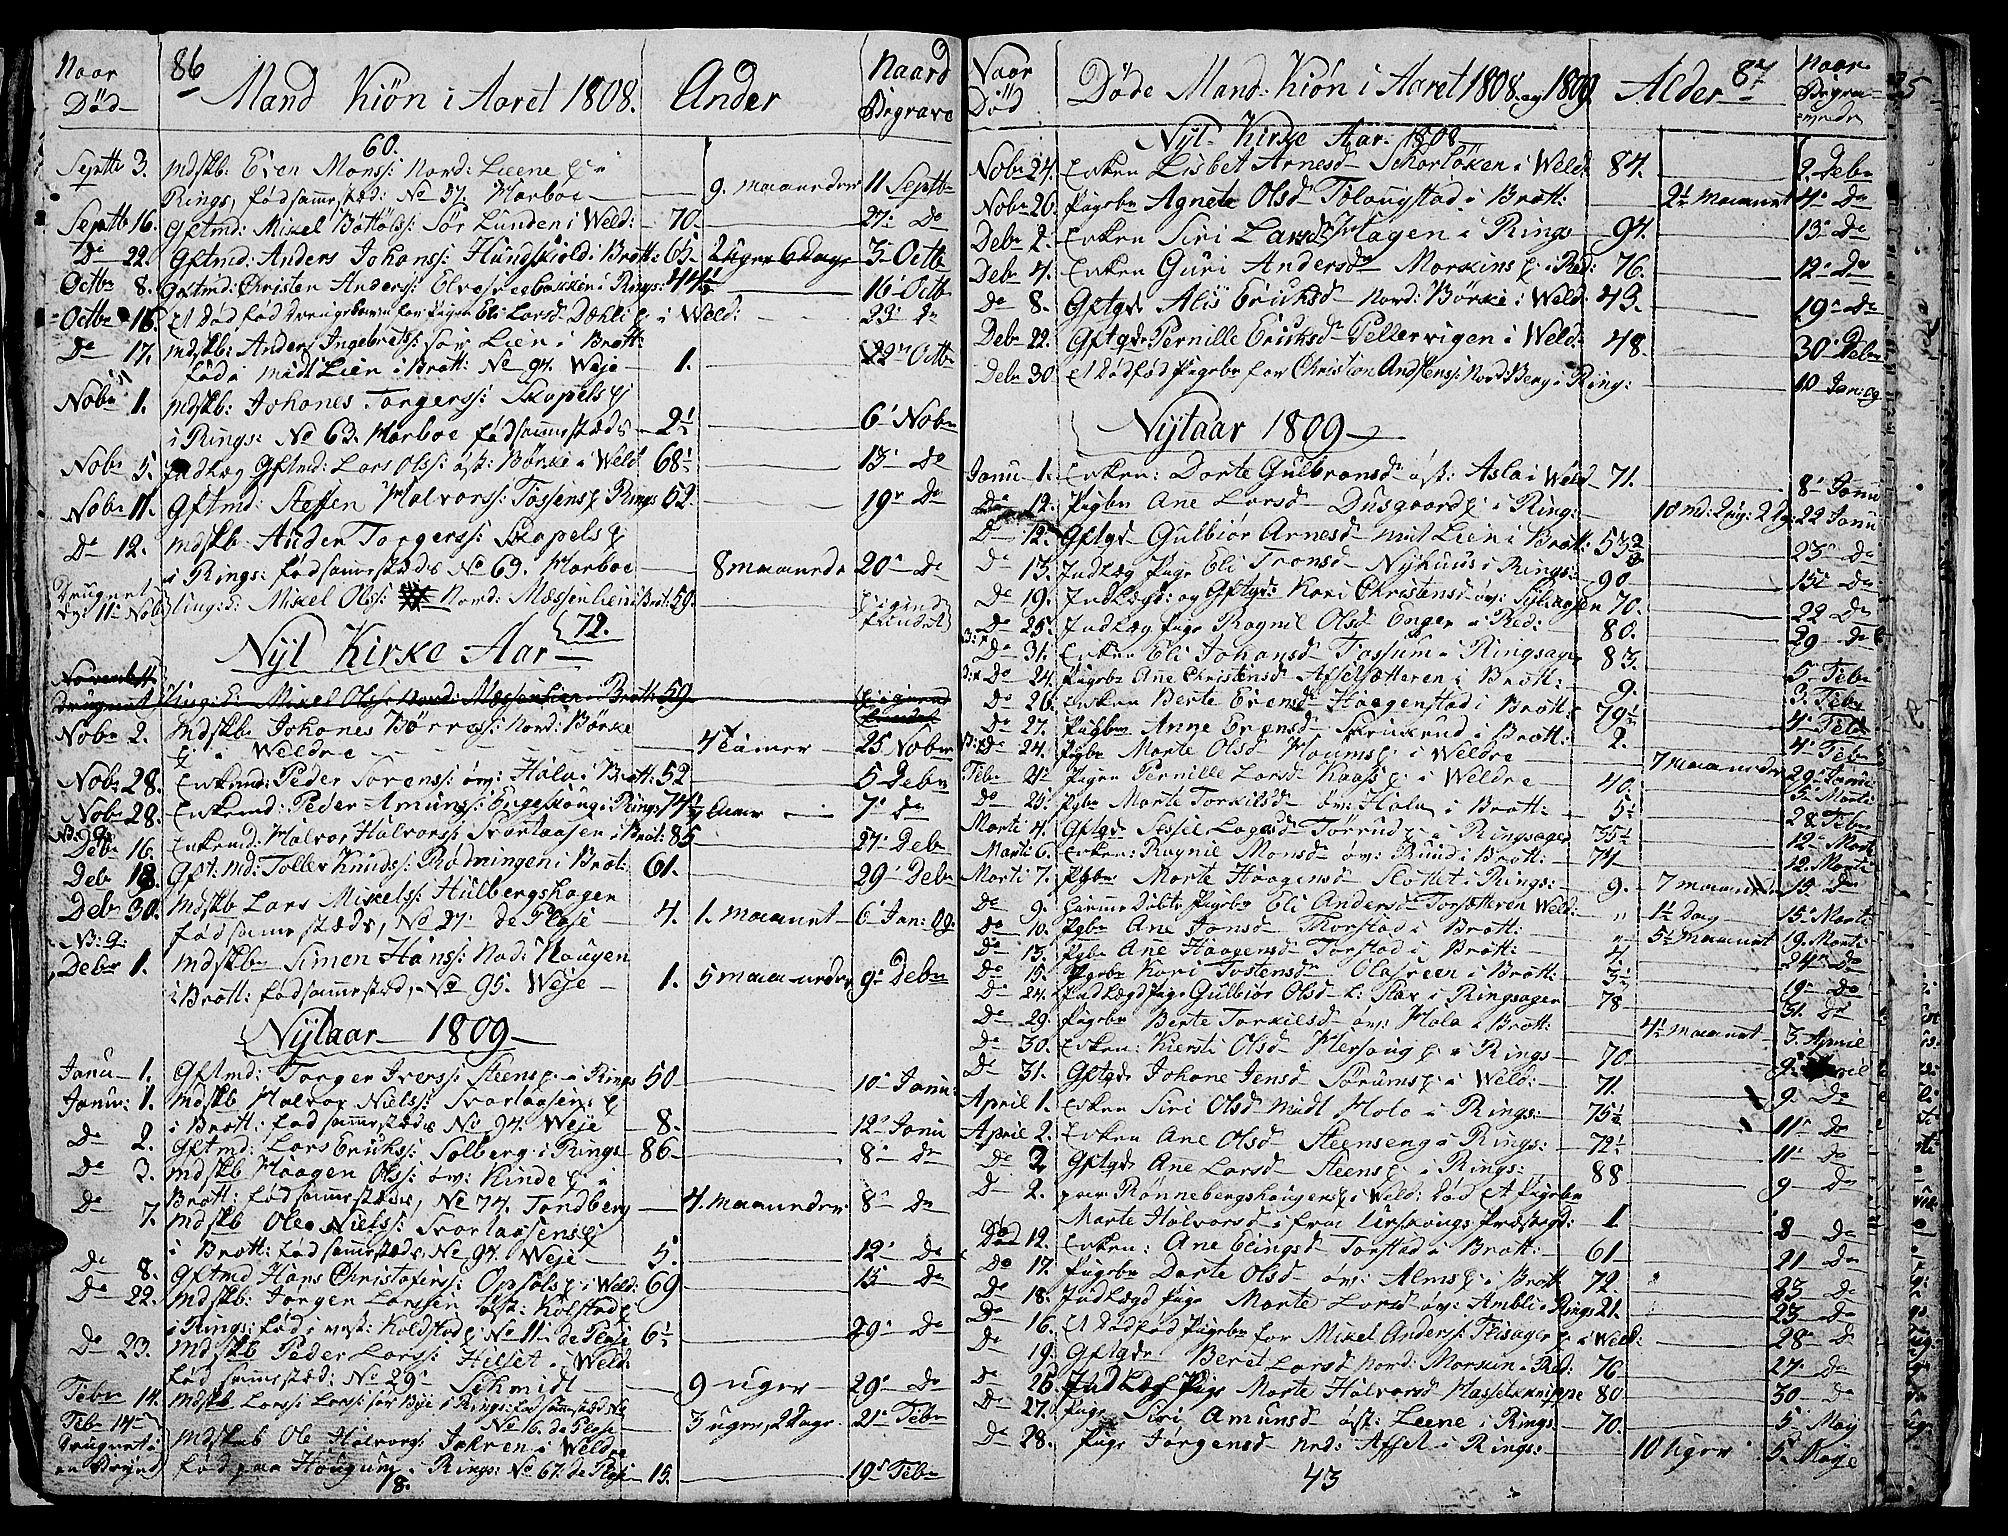 86
Naar Død
Mand Kiøn i Aaret 1808.
Ander
Naar
Begrave
60.
Septbr 3. Mdskb: Even Monss: Nord: Leene
Rings, fød sammestæd: No 57. Marboe — 9. maaneder 11 Septbr
Septbr 16. Gftmd: Mikel Bottols: Sør Lunden i Weld: 70. 27. Do
Do 22. Gftmd: Anders Johanss: Hundskiold i Brøtt: 65. 3 Octb
Octbr 8. Gftmd: Christen Anderss: i Rings: 44½ 16 Octb
Octbr 16. et død fød drengebarn for Pigen Eli Larsd Dæhli i Weld: 23 Do
Do 17. Mdskb: Anders Ingebretss: Sør Lien i Brøtt:
fød i midt Lien i Brøtt: No 97. Weje — 1. 22 Octbr
Nobr 1. Mdskb: Johanes Torgerss: Skapels
i Rings: No 63. Marboe fød sammestæds — 2½ 6 Nobr
Nobr 5. Indlæg Gftmd: Lars Olss: øst: Børke i Weld 68½ 13 Do
Nobr 11. Gftmd: Steffen Halvorss: Tossens Rings 52. 19 Do
Do 12. Mdskb Auden Torgerss: Skapels
i Rings: fød sammestæds No 69. Marboe — 8 maaneder 20 Do
Drugnet
den 11 Nob Mikel Olss: Nord: Mæssenlien i Brøt: 59.
72.
Nyt Kirke Aar
Mikel Olss: Nord: Mæssenlien i Brøtt 59
Nobr 2. Mdskb Johanes Børress: Nord: Børke
i Weldre — 4 timer 25 Nobr
Nobr 28. Enkemd: Peder Sorenss: øv: Hola i Brøtt: 52. 5 Debr
Nobr 28. Enkemd: Peder Amunss: Engeskoug i Rings 74½ 7 Do
Debr 16. Enkemd: Halvor Halvorss: Svartaasen i Brøt: 85 27 Debr
Debr 18. Gft:Md: Tollef Knudss: Rødningen i Brøt: 61. 29 Debr
Debr 30. Mdskb Lars Mikelss: Hulbergshagen
fød sammestæds, No 27. de Plesje — 4. 1. maanet — 6 Jan: 09.
NB: 9:
Debr 1. Mdskb Simen Hanss: Nord: Haugen
i Brøtt: fød sammestæd, No 95. Weje — 1. 5 maaneder 9 Debr
Nytaar 1809
Janu 1. Gftmd: Torger Iverss: Steens i Rings 50 10 Janu:
Janu: 1. Mdskb Halvor Nielss: Svartaasens
i Brøtt: fød sammestæds No 97. Weje — 8. 12 Janu
Do 2. Gftmd: Lars Erickss: Solberg i Rings 86 8 Do
Do 3. Mdskb Haagen Olss: øv: Kinde
Brøtt: fød sammestæds, No 74. Tandberg — 4. maaneder 8 Do
Do 7. Mdskb Ole Nielss: Svartaasens
i Brøtt: fød sammestæds, No 97. Weje — 5. 12 Do
Do 8. Gftmd Hans Christoferss: Opsals i Weld: 69 15 Do
Do 22. Mdskb: Jørgen Larssen øst: Kolstad
i Rings: fød i vest: Koldstad No 11 de Plesje 6½ 29 Do
Do 23. Mdskb Peder Larss: Helset i Weld:
fød sammestæd: No 29 Schmidt — 9 uger 29 Do
Febr 14. Mdskb Larss Larss: sør Bye i Rings: fød sammestæds
No 16. de Plesje 3 uger, 2 Dage 21 Febr
Febr 14 Drugnet i en Brynd Mdskb Ole Halvorss: Jahren i Weldre
fød paa Hougum i Rings: No 67. de Plesje 15. 19 Febr
18.
87
Naar Død
Døde Mand: Kiøn i Aaret 1808. og 1809
Alder
Naar
Nyt Kirke Aar 1808
Nobr 24. Enken Lisbet Arnesd Skarløken i Weld: 84. 2. Debr
Nobr 26. Pigebn Agnete Olsd Tolaugstad i Brøtt: 2½ Maanet 4 Do
Debr 2. Enken Siri Larsd Hagen i Rings 97. 13 Do
Debr 4. Enken Guri Andersd Morkins i Red: 76. 12 Do
Do 8. Gftqd: Alis Ericksd Nord: Børke i Weld 43. 19 Do
Debr 22. Gftqd: Pernille Ericksd Pellervigen i Weld: 48. 30 Debr
Debr 30 et dødfød Pigebn for Christian Andstenss: Nord: Berg i Ring: 10 Jan: 09
Nytaar 1809
Janu 1. Enken: Dorte Gulbransd øst: Asla i Weld 71. 8 Janu
Do 12. Pigebn Ane Larsd Dusgaard i Ring: 22 Janu
Do 12. Gftqd Gulbiør Arnesd mit Lien i Brøtt: 53 23 Do
Do 13. Indlæg Pige Eli Tronsd Nyhuus i Rings: 90 15 Do
Do 19. Indlægd: og Gftqd: Kari Christensd øv: 70. 22 Do
Do 25. Indlæg Pige Ragnil Olsd Enger i Red: 80. 29 Do
Do 31. Enken Eli Johansd Fossum i Ringsager 83. 5 Febr
Do 24. Pigebn Ane Christensd Affelsætteren i Brøtt: 9. 3 Febr
Do 26. Enken Berte Evensd Haagenstad i Brøtt: 79½ 4 Feb
Do 27. Pigebn Anne Evensd Skrukrud i Brøtt: 2. 4 Febr
Do 24. Pgbn Marte Olsd Houms i Weldre 7 maaneder 29 Janu
Febr 21. Pigen Pernille Larsd Kaass i Weldre 40. 5 Marti
Do 25. Pgbn Marte Torkilsd øv: Hola i Brøtt: 5½ 28 Febr
Marti 4. Gftqd Sessil Lagesd Tørrud i Ringsager 35½ 12 Marti
Marti 6. Enken: Ragnil Monsd øv: Rund i Brøtt: 74 12 Marti
Marti 7. Pgbn Marte Haagensd Slottet i Rings: 9. 7 maaneder 15 Do
Do 9. Hiemme døbte Pigebn Eli Andersd Torsætteren Weld: 1½ Dag 15 Marti
Do 10. Pgbn Ane Jonsd Thorstad i Brøtt: 5½ Maanet 19 Marti
Do 13. Pgbn Ane Haagensd Torstad i Brøtt: 4. 24 Do
Do 15. Pigebn Kari Tostensd Olasveen i Brøtt: 3½ 19 Do
Do 24. Indlægd Pige Gulbiør Olsd L: Flax i Ringsager 78 31. Do
Do 29. Pigebn Berte Torkilsd øv: Hola i Brøtt: 4½ maanet 3. April
Do 30. Enken: Kiersti Olsd Hersoug i Rings 70 9 April
Do 31. Gftqd Johane Jensd Sørums i Weld: 71. 9. Do
April 1. Enken Siri Olsd midt Hola i Rings: 75½ 11 Do
April 2. Enken Ane Olsd Steenseng i Rings: 72½ 11 Do
Do 2 Gftqd Ane Larsd Steens i Rings: 88 9 Do
Do 2. paa Rønnebergshaugen i Weld: død et Pigebn
Marte Halvorsd fra Urskougs Præstegd: 1 8 Do
Do 12. Enken: Ane Elingsd Torstad i Brøtt: 61 21 Do
Do 17. Pigebn Dorte Olsd øv: Alms i Brøtt 72. 23 Do
Do 18. Indlægd Pige Marte Larsd øv: Ambli i Rings 21. 23 Do
Do 16. et dødfød Pigebn for Mikel Anderss: Fisager i Weld: 28 Do
Do 19. Gftqd Beret Larsd Nord: Morken i Red: 76 27 Do
Do 26. Indlæg Pige Marte Halvorsd Hasselknippe 80 30 Do
Do 27. Pige Siri Amunsd øst: Leene i Rings 70. 5 May
Do 28. Pige Jørgensd Nrd: Affel i Rings: 10 Uger 5 Maye
43